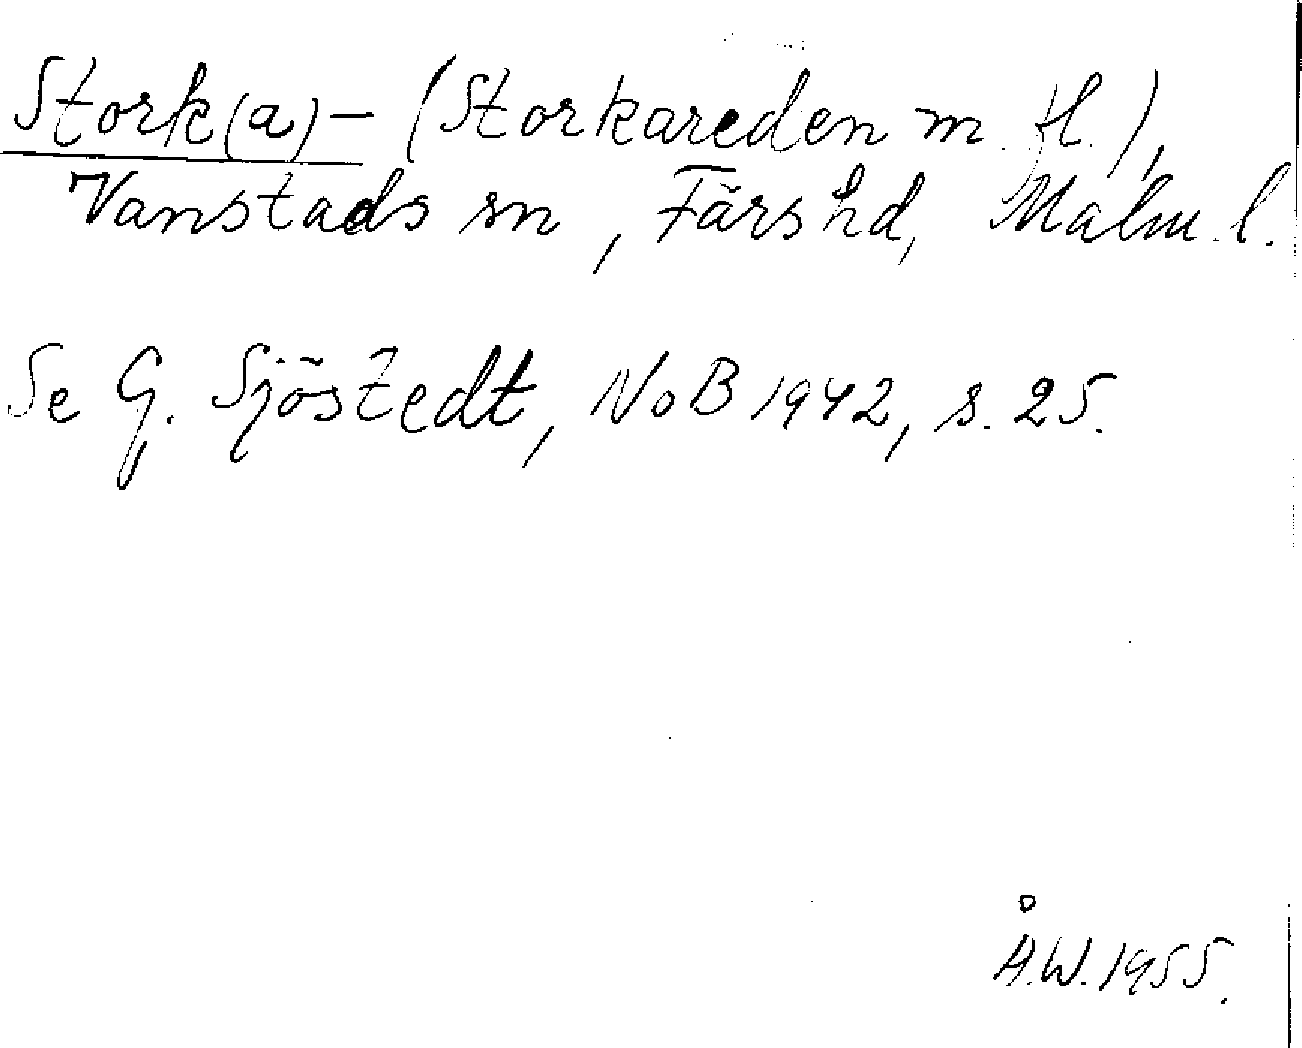 Stork(a)- (Storkareden m. fl.),
Vanstads sn, Färs hd, Malm. l.
Se G. Sjöstedt, NoB 1942, s. 25.
Å.W. 1955.